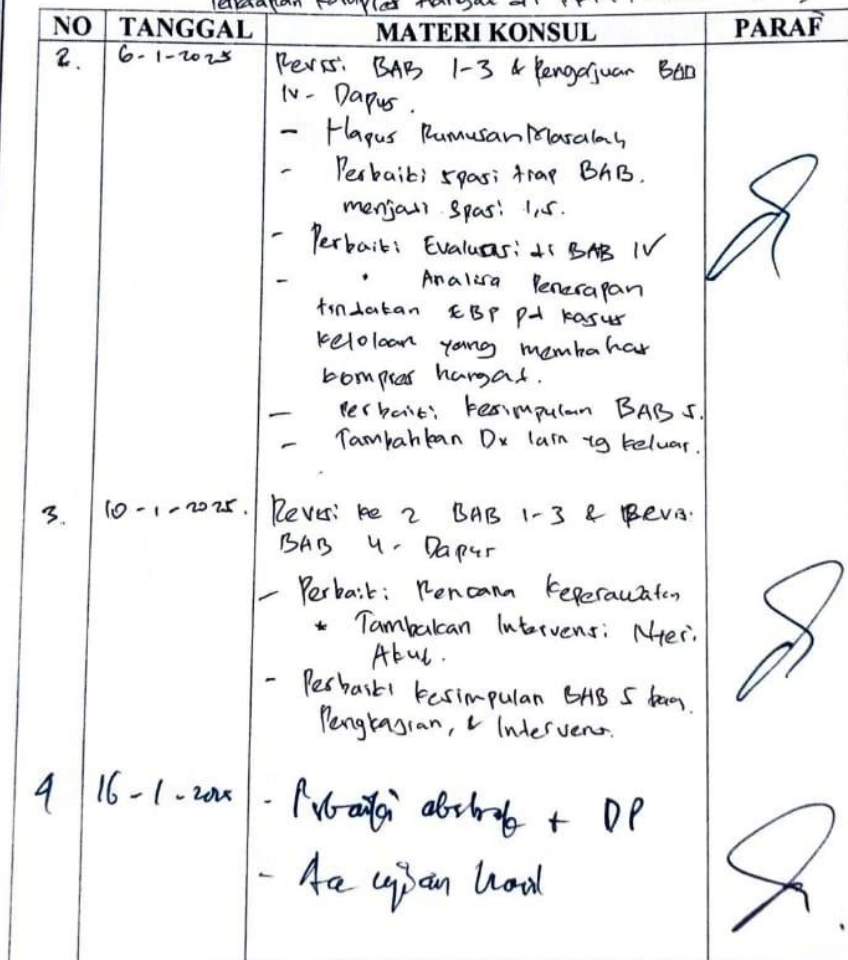 Kompres Hangat di
NO TANGGAL MATERI KONSUL PARAF
2. 6-1-2025 Revisi BAB 1-3 & Pengajuan BAB
IV - Dapus.
- Hapus Rumusan Masalah
- Perbaiki spasi tiap BAB.
menjadi spasi 1,5.
- Perbaiki Evaluasi di BAB IV
- • Analisa Penerapan
tindakan EBP pd kasus
kelolaan yang membahas
kompres hangat.
- Perbaiki kesimpulan BAB 5.
- Tambahkan Dx lain yg keluar.
3. 10-1-2025. Revisi ke 2 BAB 1-3 & Revisi
BAB 4 - Dapus
- Perbaiki Rencana Keperawatan
* Tambakan Intervensi Nyeri
Akut.
- Perbaiki kesimpulan BAB 5 bag.
Pengkajian, & Intervensi.
4 16-1-2025 - Perbaiki abstrak + DP
- Acc ujian hasil